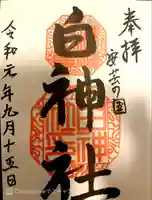 奉拝
安芸の国
白神社
令和元年九月十五日